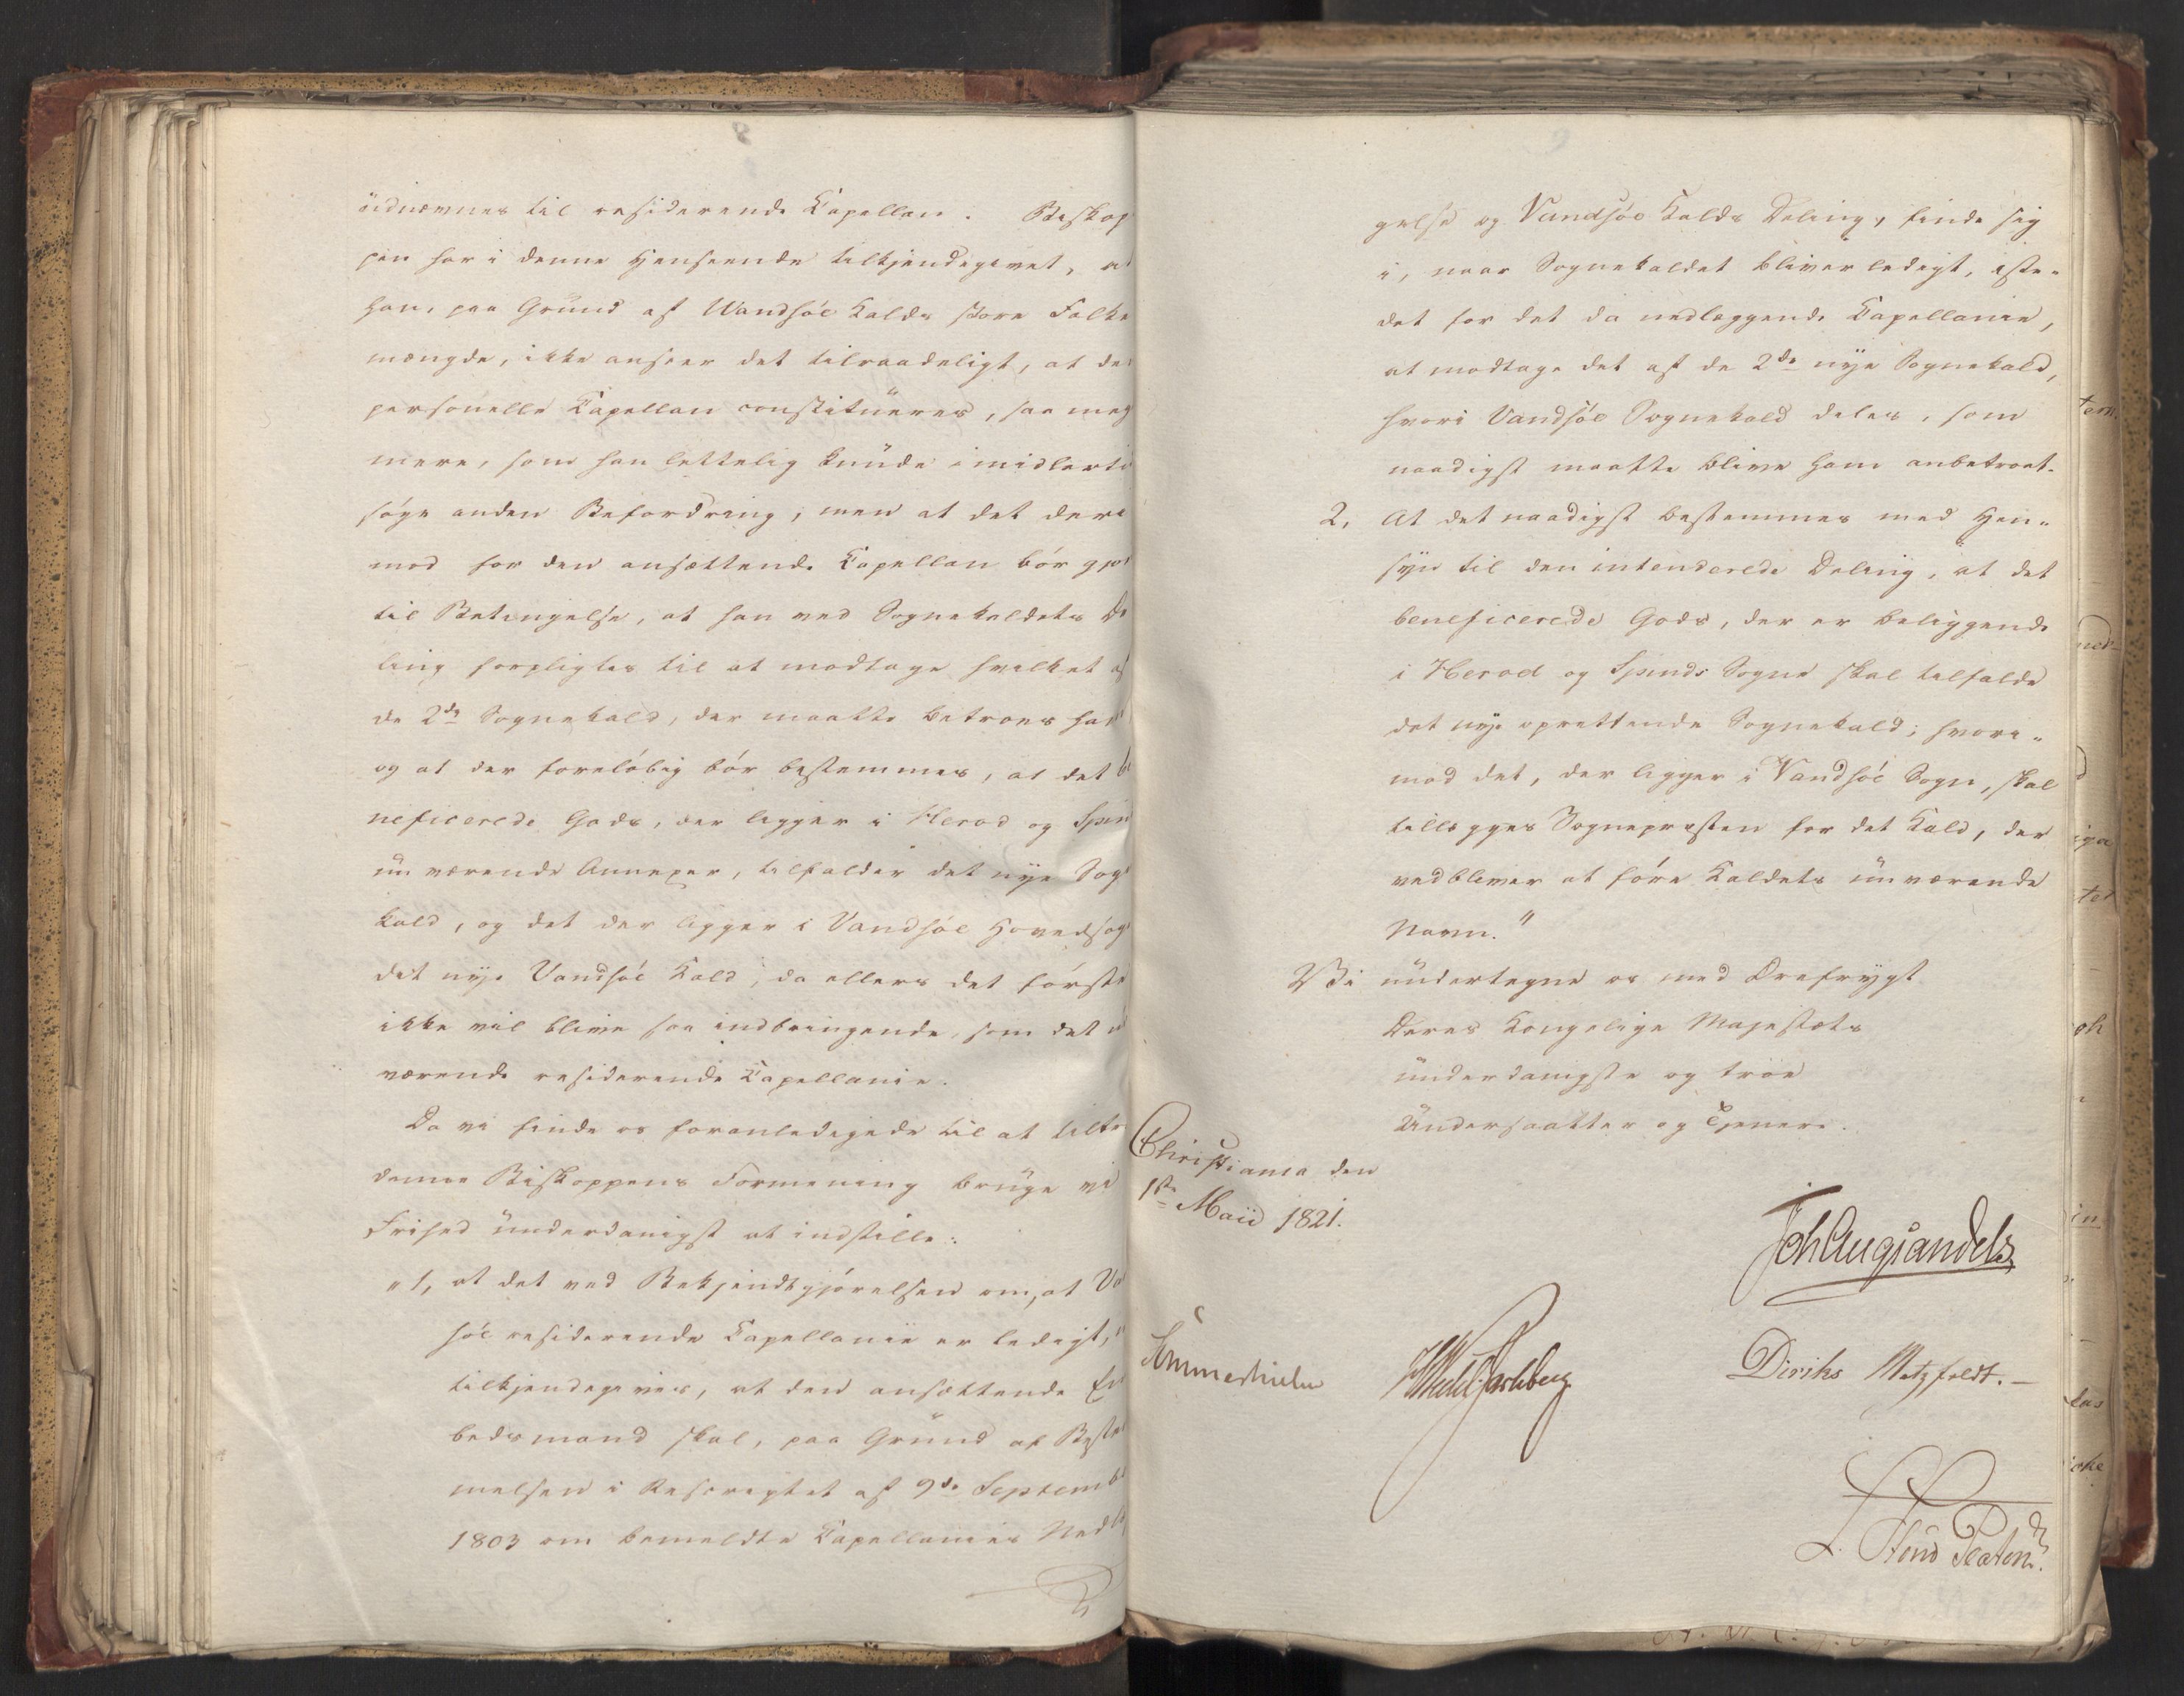 üdnævnes til residerende Capellan. Biskop
pen har i denne Henseende tilkjendegivet, at
han, paa Grund af Vandsöe Kalds store Folke
mængde, ikke anseer det tilraadeligt, at de
personelle Capellan constitueres, saa meg
mere, som han lettelig kunde imidlerti
søge anden Befordring, men at det der
mod for den ansættende Capellan bør gjø
til Betingelse, at han ved Sognekaldets De
ling forpligtes til at modtage hvilket af
de 2de Sognekald, der maatte betroes ham
og at der foreløbig bør bestemmes, at det be
neficerede Gods, der ligger i Herod og Spin
nu værende Annexer, tilfalder det nye Sog
kald, og det der ligger i Vandsöe Hovedsog
det nye Vandsöe Kald, da ellers det første
ikke vil blive saa indbringende, som det n
værende residerende Capellanie.
Da vi finde os foranledigede til at tiltr
denne Biskoppens Formening bruge vi
Frihed underdanigst at indstille:
"1, at det ved Bekjendtgjørelsen om, at Va
søe residerende Capellanie er ledigt,
tilkjendegives, at den ansættende Em
bedsmand skal, paa Grund af Beste
melsen i Rescriptet af 9de Septemb
1803 om bemeldte Capellanies Nedlæ
gelse og Vandsöe Kalds Deling, finde sig
i, naar Sognekaldet bliver ledigt, iste-
det for det da nedlæggende Capellanie,
at modtage det af de 2de nye Sognekald,
hvori Vandsöe Sognekald deles, som
naadigst maatte blive ham anbetroet.
2, At det naadigst bestemmes med Hen-
syn til den intenderede Deling, at det
beneficerede Gods, der er beliggende
i Herod og Spinds Sogne skal tilfalde
det nye oprettende Sognekald; hvori-
mod det, der ligger i Vandsöe Sogn, skal
tillægges Sognepræsten for det Kald, der
vedbliver at føre Kaldets nu værende
Navn."
Vi undertegne os med Ærefrygt
Deres Kongelige Majestæts
underdanigste og troe
Undersaatter og Tjenere.
Christiania den
1ste Maii 1821.
Joh Aug Sandels
Sommerhielm
HWedel Jarlsberg
Diriks Motzfeldt.
L. Stoud Platou